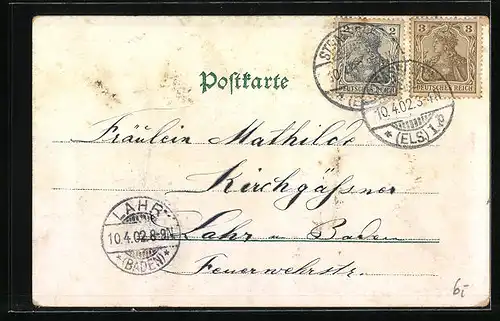 Postkarte
2
3
DEUTSCHES REICH
DEUTSCHES REICH
10.4.02.3-4N
*(ELS.)1.e
Fräulein Mathilde
Kirchgässner
Lahr in Baden
Feuerwehrstr.
LAHR
10.4.02.8-9N
*(BADEN)*
6.-